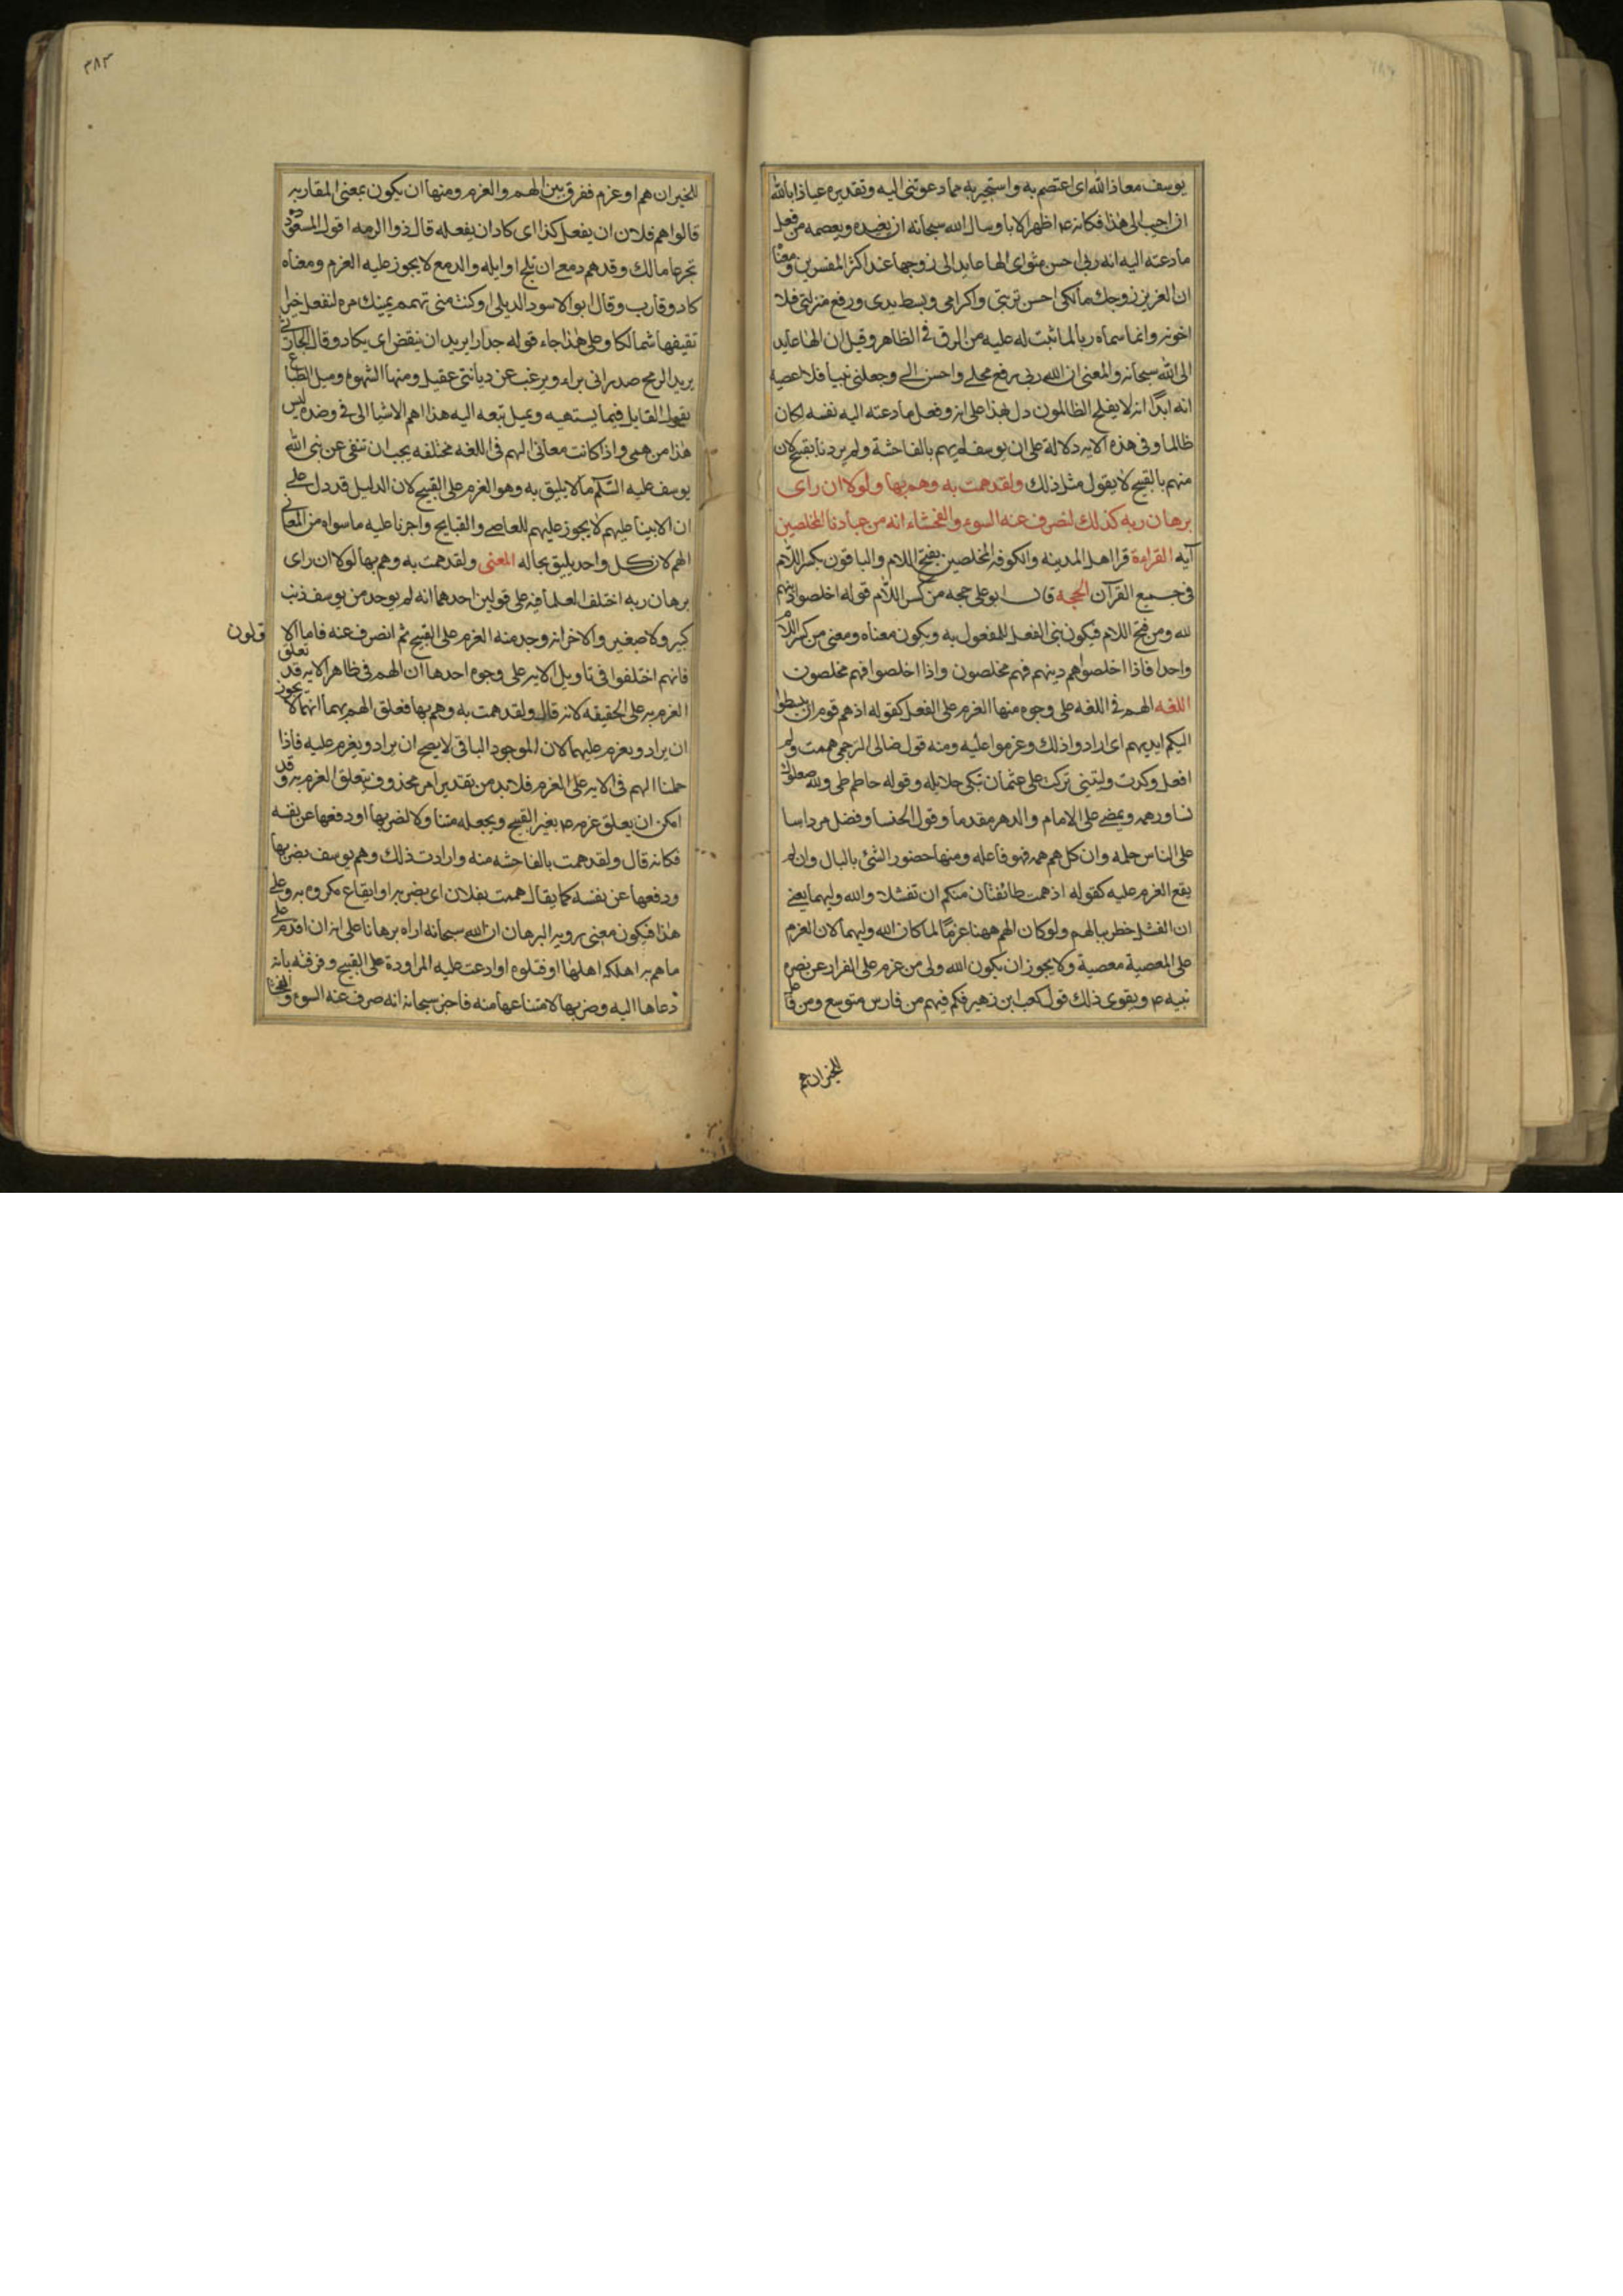 ٣٨٣
يوسف معاذ الله اى اعتصم به واستجير به مما دعوتنى اليه وتقديره عياذا بالله
ان اجيب الى هذا فكانه ع اظهر الابا وسال الله سبحانه ان يعيذه ويعصمه من فعل
ما دعته اليه انه ربى احسن مثواى الها عايد الى زوجها عند اكثر المفسرين ومعناه
ان العزيز زوجك مالكى احسن تربيتى واكرامى وبسط يدى ورفع منزلتى فلا
اخونه وانما سماه ربا لما ثبت له عليه من الرق فى الظاهر وقيل ان الها عايد
الى الله سبحانه والمعنى ان الله ربى رفع محلى واحسن الى وجعلنى نبيا فلا اعصيه
انه ابدًا انه لا يفلح الظالمون دل بهذا على انه لو فعل ما دعته اليه نفسه لكان
ظالما وفى هذه الايه دلالة على ان يوسف لم يهم بالفاحشة ولم يردنا بقبيح لان
منهم بالقبيح لا يقول مثل ذلك ولقد همت به وهم بها ولولا ان راى
برهان ربه كذلك لنصرف عنه السوء والفحشاء انه من عبادنا المخلصين
آيه القراءة قرا اهل المدينه والكوفه المخلصين بفتح اللام والباقون بكسر اللام
فى جميع القرآن الحجه قال ابو على حجه من كسر اللام قوله اخلصوا دينهم
لله ومن فتح اللام فيكون بنى الفعل للمفعول به ويكون معناه ومعنى من كسر اللام
واحدا فاذا اخلصوا هم دينهم فهم مخلصون واذا اخلصوا فهم مخلصون
اللغه الهم فى اللغه على وجوه منها العزم على الفعل كقوله اذ هم قوم ان يبسطوا
اليكم ايديهم اى ارادوا ذلك وعزموا عليه ومنه قول ضابى البرجمى هممت ولم
افعل وكدت وليتنى تركت على عثمان تبكى حلايله وقوله حاتم طى ولله صعلوك
تساور همه ويمضى على الامام والدهر مقدما وقول الخنسا وفضل مرداسا
على الناس حمله وان كل هم همه فهو فاعله ومنها حضور الشئ بالبال وان لم
يقع العزم عليه كقوله اذ همت طائفتان منكم ان تفشلا والله وليهما يعنى
ان الفشل خطر ببالهم ولو كان الهم ههنا عزمًا لما كان الله وليهما لان العزم
على المعصية معصية ولا يجوز ان يكون الله ولى من عزم على الفرار عن نصره
نبيه ع ويقوى ذلك قول كعب ابن زهير فكم فيهم من فارس متوسع ومن فاعل
للخير ان هم
للخير ان هم او عزم ففرق بين الهم والعزم ومنها ان يكون بمعنى المقاربه
قالوا هم فلان ان يفعل كذا اى كاد ان يفعله قال ذو الرمه اقول لمسعود
بجرعا مالك وقد هم دمع ان تلج اوايله والدمع لا يجوز عليه العزم ومعناه
كاد وقارب وقال ابو الاسود الديلى وكنت متى تهمم يمينك مره لتفعل خيرا
تقيفها شمالكا وعلى هذا جاء قوله جدارا يريد ان ينقض اى يكاد وقال الحارثى
يريد الرمح صدر ابى براء ويرغب عن دماء بنى عقيل ومنها الشهوه وميل الطباع
يقول القايل فيما يشتهيه ويميل تبعه اليه هذا اهم الاشيا الى وفى ضده ليس
هذا من همى واذا كانت معانى الهم فى اللغه مختلفه يجب ان تنفى عن نبى الله
يوسف عليه السلم ما لا يليق به وهو العزم على القبيح لان الدليل قد دل على
ان الانبيا عليهم لا يجوز عليهم المعاصى والقبايح واجرنا عليه ما سواه من المعانى
الهم لان كل واحد يليق بحاله المعنى ولقد همت به وهم بها لولا ان راى
برهان ربه اختلف العلما فيه على قولين احدهما انه لم يوجد من يوسف ذنب
كبير ولا صغير والاخر انه وجد منه العزم على القبيح ثم انصرف عنه فاما الا
قلون
فانهم اختلفوا فى تاويل الايه على وجوه احدها ان الهم فى ظاهر الايه قد تعلق
العزم به على الحقيقه لانه قال ولقد همت به وهم بها فعلق الهم بهما انهما لا يجوز
ان يراد ويعزم عليهما لان الموجود الباقى لا يصح ان يراد ويعزم عليه فاذا
حملنا الهم فى الايه على العزم فلا بد من تقدير امر محذوف يتعلق العزم به وقد
امكن ان يعلق عزمه ع بغير القبيح ويجعله متناولا لضربها او دفعها عن نفسه
فكانه قال ولقد همت بالفاحشه منه وارادت ذلك وهم يوسف بضربها
ودفعها عن نفسه كما يقال هممت بفلان اى بضربه او ايقاع مكروه به وعلى
هذا فيكون معنى رويه البرهان ان الله سبحانه اراه برهانا على انه ان اقدم على
ما هم به اهلكه اهلها او قتلوه او ادعت عليه المراودة على القبيح وقرفته بانه
دعاها اليه وضربها لامتناعها منه فاخبر سبحانه انه صرف عنه السوء والفحشا